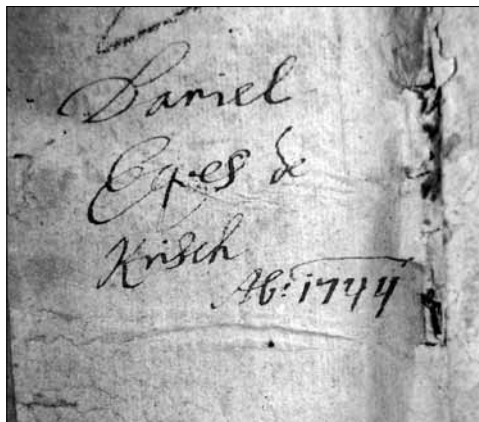 Daniel
Eqes de
Krisch
Ab: 1744